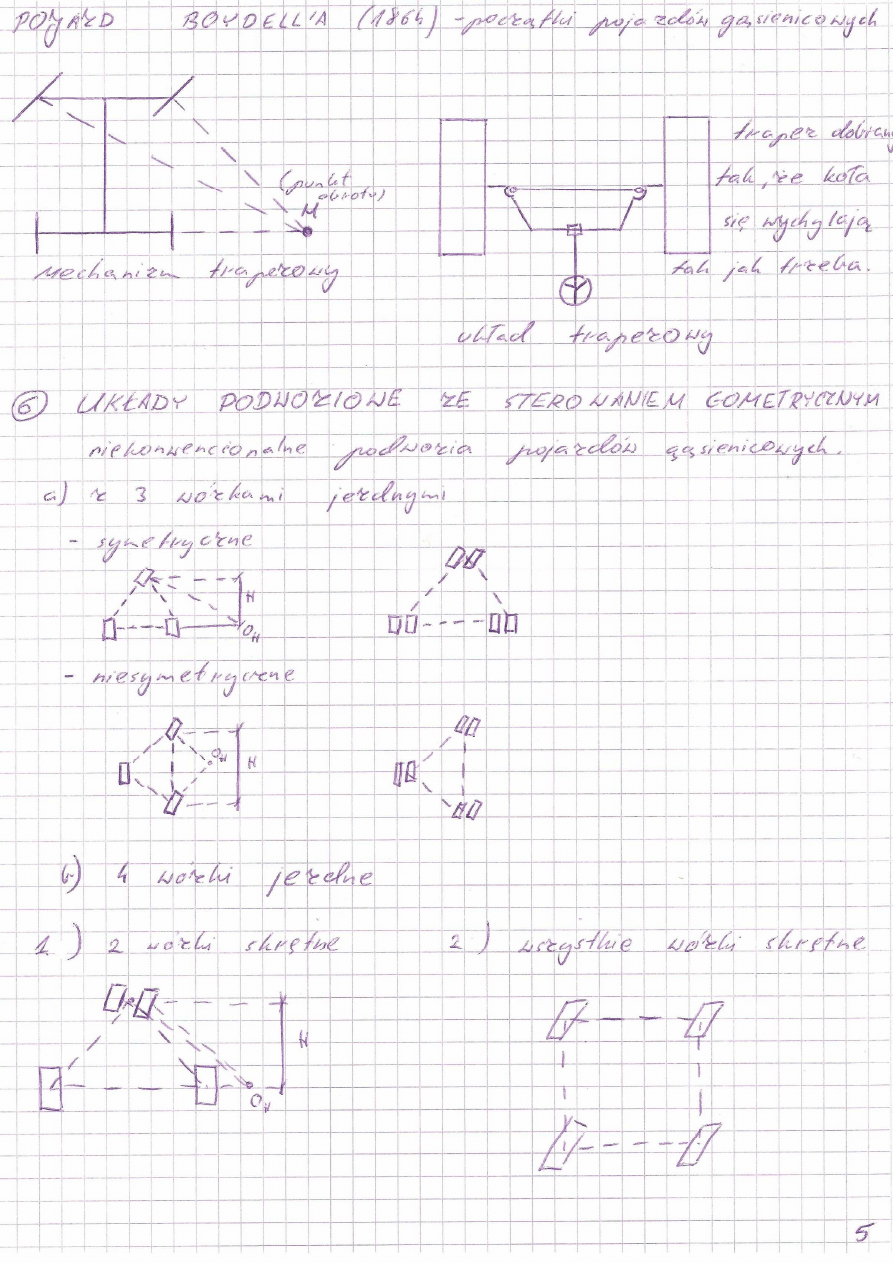 POJAZD BOYDELL'A (1864) - początki pojazdów gąsienicowych
(punkt obrotu)
M
Mechanizm trapezowy
trapez dobrany
tak, że koła
się wychylają
tak jak trzeba.
układ trapezowy
6 UKŁADY PODWOZIOWE ZE STEROWANIEM GOMETRYCZNYM
niekonwencjonalne podwozia pojazdów gąsienicowych.
a) z 3 wózkami jezdnymi
- symetryczne
H
OH
- niesymetryczne
OH
H
b) 4 wózki jezdne
1.) 2 wózki skrętne
2) wszystkie wózki skrętne
H
OH
5